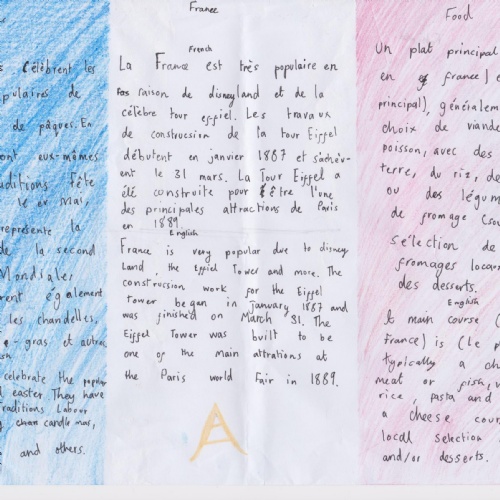 s célèbrent les
pulaires de
de pâques. En
ont eux-mêmes
aditions fête
le er Mai,
représente la
de la second
Mondiales
rent également
les chandelles,
- gras et autres
celebrate the popular
d easter. They have
traditions Labour
chan candle mas,
and others.
France
French
La France est très populaire en
raison de disneyland et de la
célebre tour effiel. Les travaux
de construcsion de la tour Eiffel
débutent en janvier 1887 et s'achèv-
ent le 31 mars. La Tour Eiffel a
été construite pour être l'une
des principales attractions de Paris
en 1889.
English
France is very popular due to disney
Land, the Effiel Tower and more. The
construssion work for the Eiffel
tower began in january 1887 and
was finished on March 31. The
Eiffel Tower was built to be
one of the main attrations at
the Paris world Fair in 1889.
A
Food
Un plat principal
en france (
principal), généralement
choix de viande
poisson, avec des
terre, du riz, de
ou des légum
de fromage (sou
sélection de
fromages loca
des desserts.
English
A main course (
France) is (le p
typically a ch
meat or fish,
rice, pasta and
a cheese cour
local selection
and/or desserts.